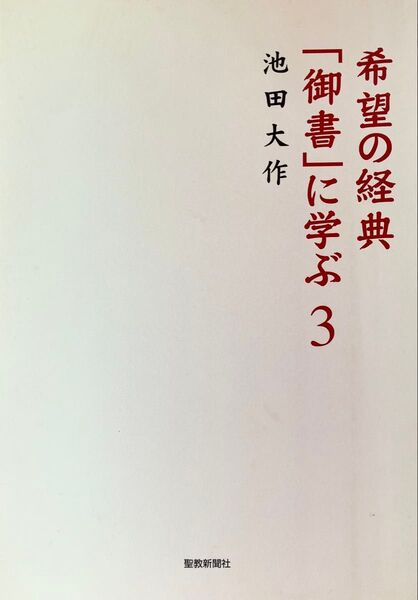 希望の経典
「御書」に学ぶ 3
池田大作
聖教新聞社